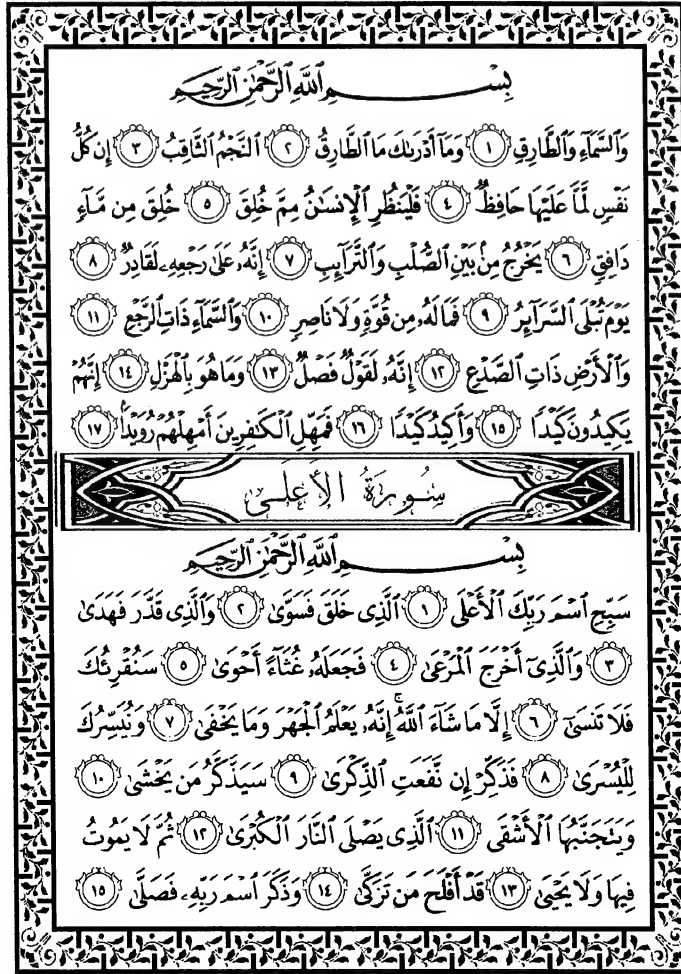 بِسْمِ اللَّهِ الرَّحْمَٰنِ الرَّحِيمِ
وَالسَّمَآءِ وَالطَّارِقِ ١ وَمَآ أَدْرَىٰكَ مَا الطَّارِقُ ٢ النَّجْمُ الثَّاقِبُ ٣ إِن كُلُّ
نَفْسٍ لَّمَّا عَلَيْهَا حَافِظٌ ٤ فَلْيَنظُرِ الْإِنسَٰنُ مِمَّ خُلِقَ ٥ خُلِقَ مِن مَّآءٍ
دَافِقٍ ٦ يَخْرُجُ مِنۢ بَيْنِ الصُّلْبِ وَالتَّرَآئِبِ ٧ إِنَّهُۥ عَلَىٰ رَجْعِهِۦ لَقَادِرٌ ٨
يَوْمَ تُبْلَى السَّرَآئِرُ ٩ فَمَا لَهُۥ مِن قُوَّةٍ وَلَا نَاصِرٍ ١٠ وَالسَّمَآءِ ذَاتِ الرَّجْعِ ١١
وَالْأَرْضِ ذَاتِ الصَّدْعِ ١٢ إِنَّهُۥ لَقَوْلٌ فَصْلٌ ١٣ وَمَا هُوَ بِالْهَزْلِ ١٤ إِنَّهُمْ
يَكِيدُونَ كَيْدًا ١٥ وَأَكِيدُ كَيْدًا ١٦ فَمَهِّلِ الْكَٰفِرِينَ أَمْهِلْهُمْ رُوَيْدًۢا ١٧
سُورَةُ الْأَعْلَى
بِسْمِ اللَّهِ الرَّحْمَٰنِ الرَّحِيمِ
سَبِّحِ اسْمَ رَبِّكَ الْأَعْلَى ١ الَّذِى خَلَقَ فَسَوَّىٰ ٢ وَالَّذِى قَدَّرَ فَهَدَىٰ
٣ وَالَّذِىٓ أَخْرَجَ الْمَرْعَىٰ ٤ فَجَعَلَهُۥ غُثَآءً أَحْوَىٰ ٥ سَنُقْرِئُكَ
فَلَا تَنسَىٰٓ ٦ إِلَّا مَا شَآءَ اللَّهُ ۚ إِنَّهُۥ يَعْلَمُ الْجَهْرَ وَمَا يَخْفَىٰ ٧ وَنُيَسِّرُكَ
لِلْيُسْرَىٰ ٨ فَذَكِّرْ إِن نَّفَعَتِ الذِّكْرَىٰ ٩ سَيَذَّكَّرُ مَن يَخْشَىٰ ١٠
وَيَتَجَنَّبُهَا الْأَشْقَى ١١ الَّذِى يَصْلَى النَّارَ الْكُبْرَىٰ ١٢ ثُمَّ لَا يَمُوتُ
فِيهَا وَلَا يَحْيَىٰ ١٣ قَدْ أَفْلَحَ مَن تَزَكَّىٰ ١٤ وَذَكَرَ اسْمَ رَبِّهِۦ فَصَلَّىٰ ١٥